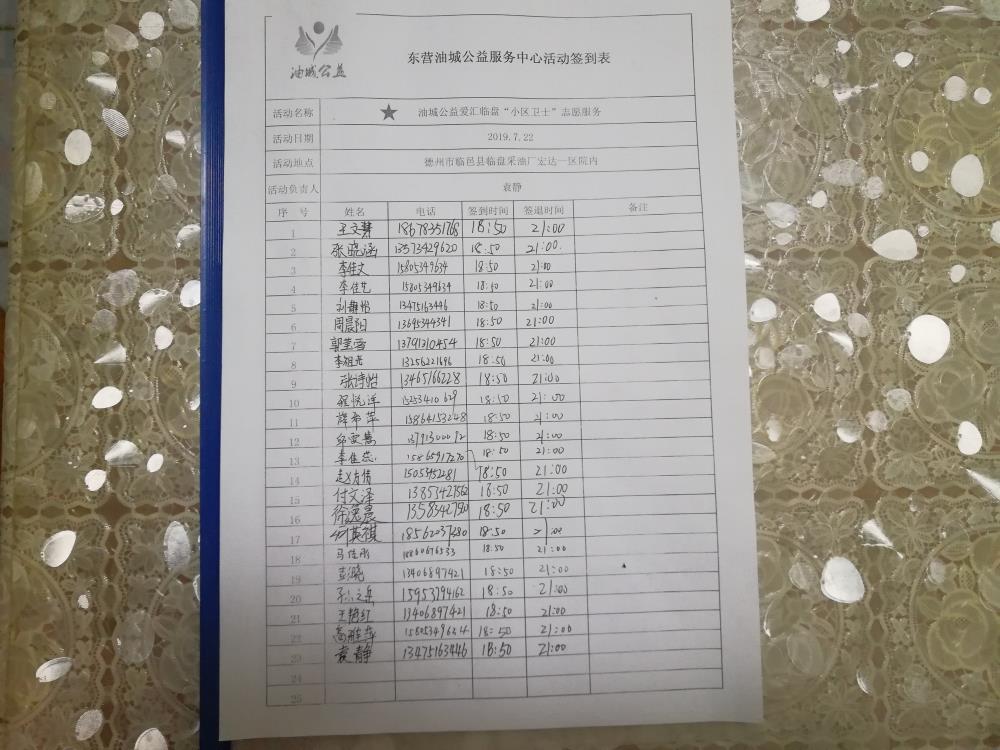 油城公益
东营油城公益服务中心活动签到表
活动名称 ★ 油城公益爱汇临盘“小区卫士”志愿服务
活动日期 2019.7.22
活动地点 德州市临邑县临盘采油厂宏达一区院内
活动负责人 袁静
序 号 姓名 电话 签到时间 签退时间 备注
1 王文慧 18678351768 18:50 21:00
2 张晓涵 13573429620 18:50 21:00.
3 李佳文 15805349634 18:50 21:00
4 李佳艺 15805349634 18:50 21:00
5 刘静怡 13475163446 18:50 21:00
6 周晨阳 13695344341 18:50 21:00
7 13791210454 18:50 21:00
8 李祖光 13256221696 18:50 21:00
9 张诗怡 13465166228 18:50 21:00
10 程悦洋 15253410629 18:50 21:00
11 薛希萍 15864153248 18:50 21:00
12 邱雯慧 13791300072 18:50 21:00
13 李佳蕊 15865917270 18:50 21:00
14 赵方倩 15053452281 18:50 21:00
15 付文泽 13853427562 18:50 21:00
16 徐逸晨 1358342790 18:50 21:00
17 18562037280 18:50 21:00
18 18:50 21:00
19 彭晓 13406897421 18:50 21:00
20 15953794162 18:50 21:00
21 王艳红 13406897421 18:50 21:00
22 高胜萍 15805349634 18:50 21:00
23 袁静 13475163446 18:50 21:00
24
25